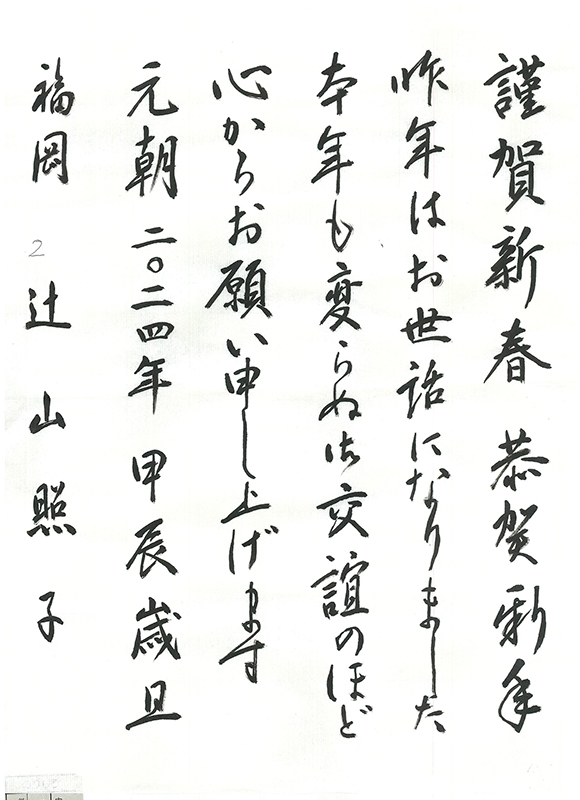 謹賀新春 恭賀新年
昨年はお世話になりました
本年も変らぬ御交誼のほど
心からお願い申し上げます
元朝 二〇二四年 甲辰歳旦
福岡 2 辻山照子